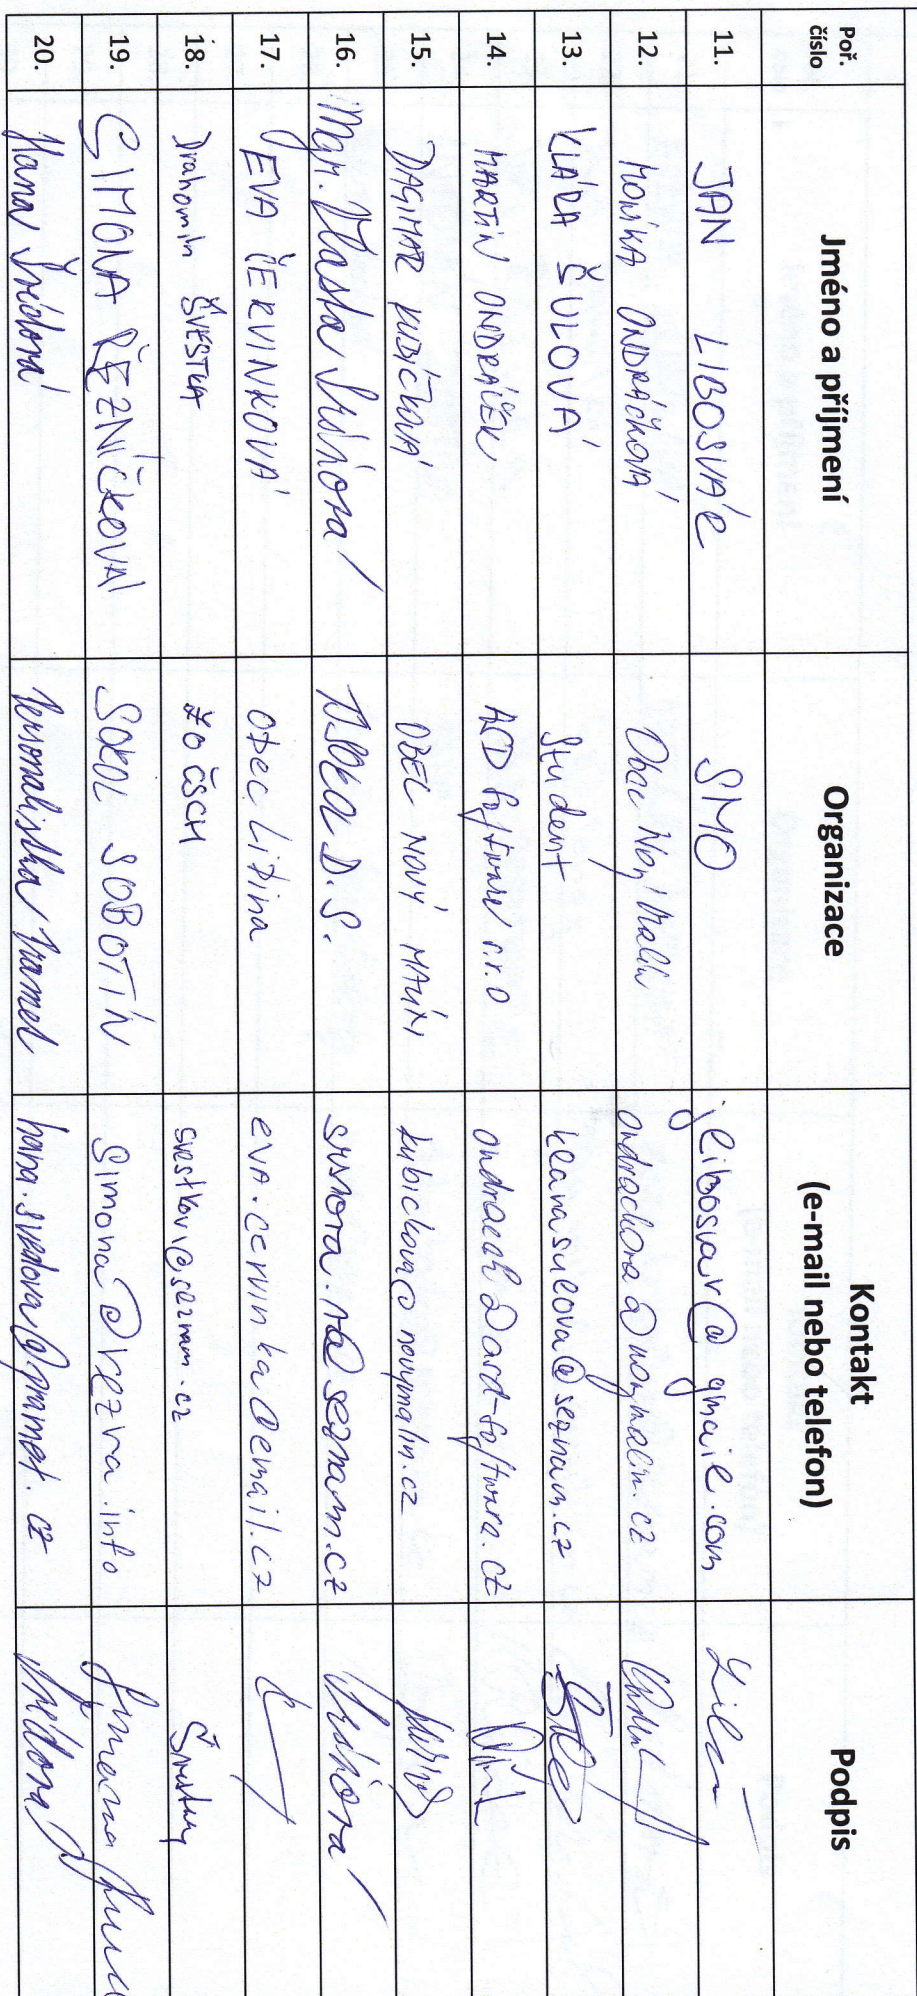 Poř. číslo Jméno a příjmení Organizace Kontakt (e-mail nebo telefon) Podpis
11. JAN LIBOSVÁR SMO jlibosvar@gmail.com
12. MONIKA ONDRÁČKOVÁ Obec Nový Malín ondrackova@novymalin.cz
13. KLÁRA ŠULOVÁ Student klarasulova@seznam.cz
14. MARTIN ONDRÁČEK software s.r.o
15. DAGMAR KUBÍČKOVÁ OBEC NOVÝ MALÍN kubickova@novymalin.cz
16. Mgr. Vlasta D.S. seznam.cz
17. EVA ČERVINKOVÁ OBEC LIBINA eva.cervinka@email.cz
18. Drahomír ŠVESTKA ZO ČSCH svestkovi@seznam.cz
19. SIMONA ŘEZNÍČKOVÁ SOKOL SOBOTÍN simona@rezva.info
20. Hana Švédová Personalistka Pramet hana.svedova@pramet.cz